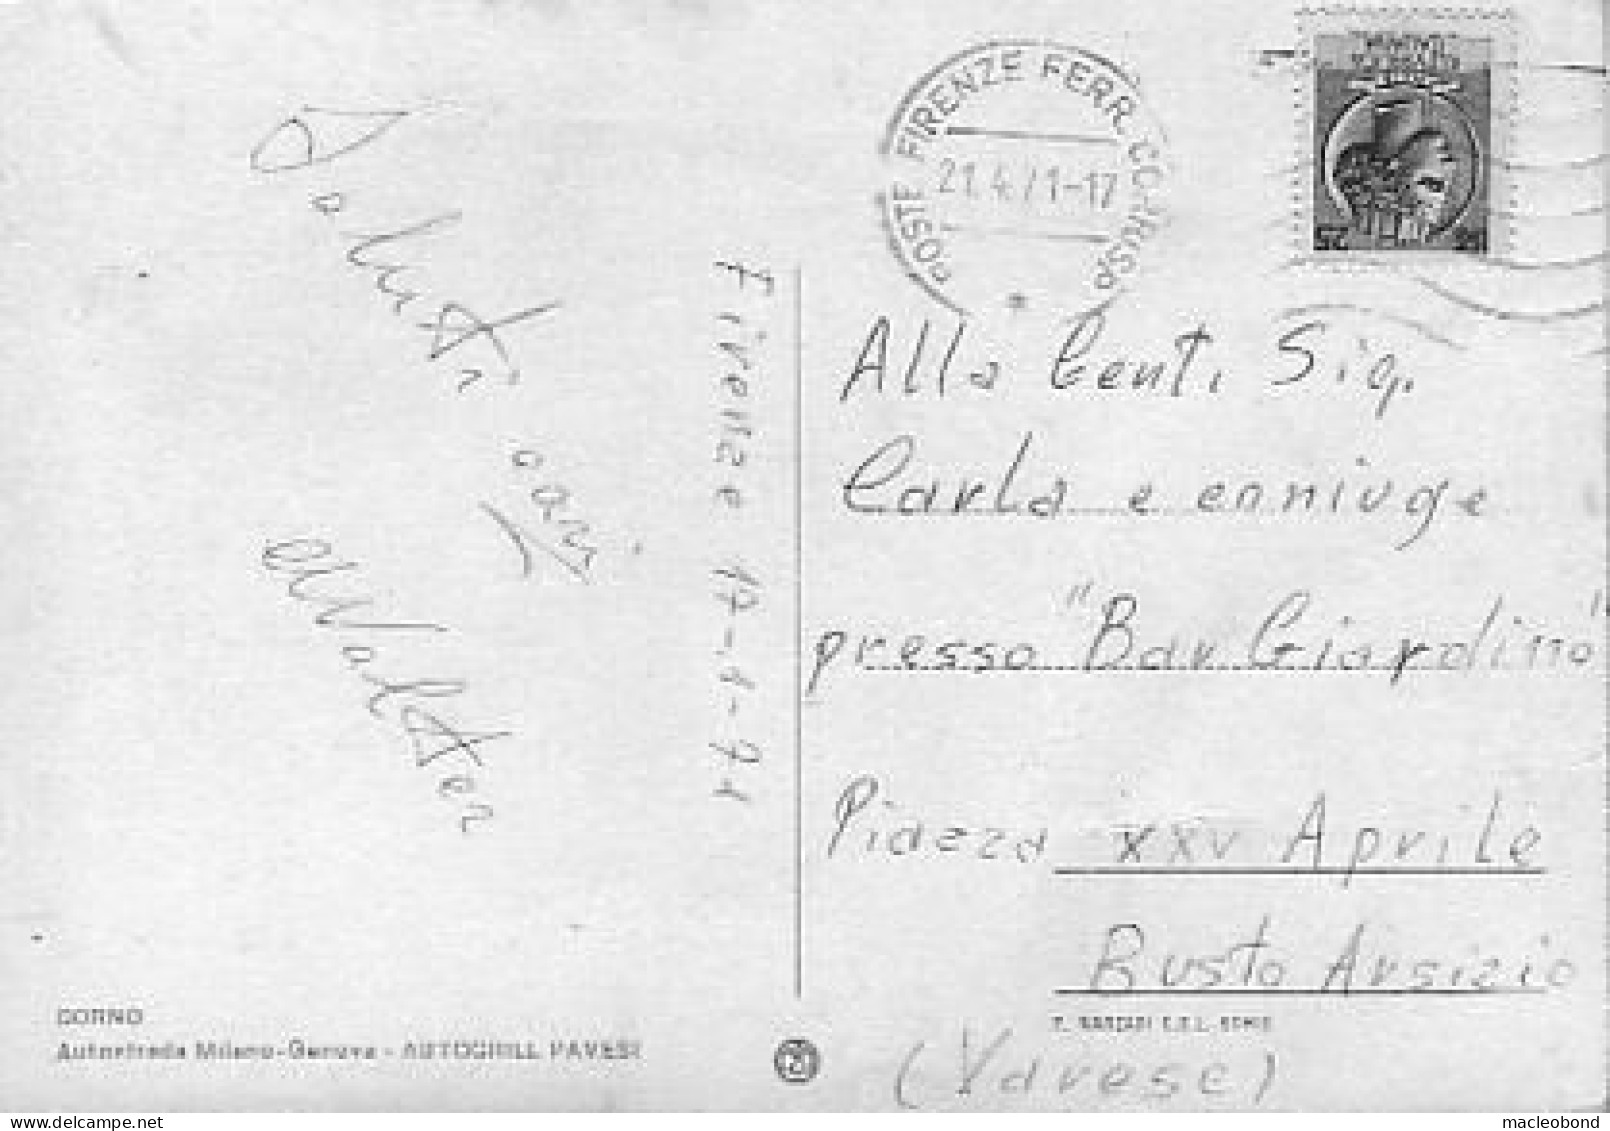 Saluti
cari
Walter
Firenze 17-4-71
POSTE FIRENZE FERR. CORRISP.
21.4.71-17
Alla Gent. Sig.
Carla e conniuge
presso "Bar Giardino"
Piazza XXV Aprile
Busto Arsizio
(Varese)
DORNO
Autostrada Milano-Genova - AUTOGRILL PAVESI
macleobond